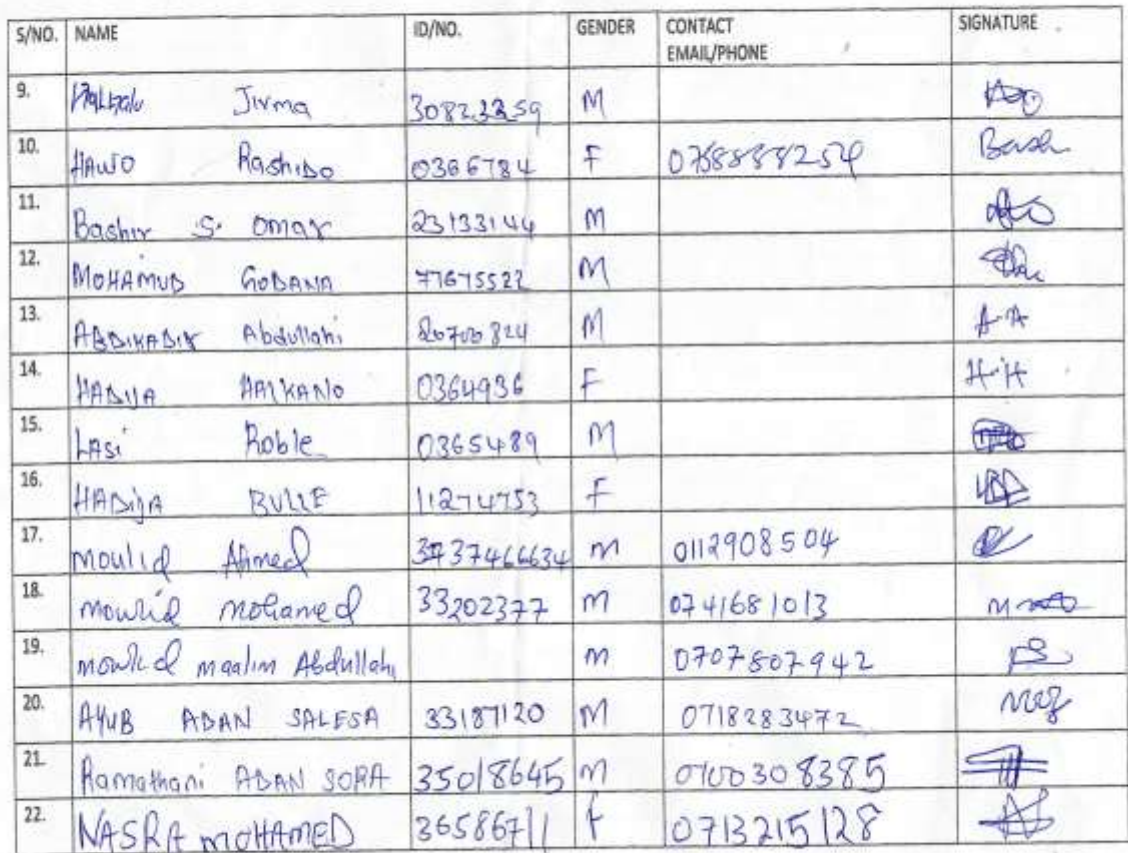 S/NO. NAME ID/NO. GENDER CONTACT EMAIL/PHONE SIGNATURE
9. Jirma M
10. HAWO RashiDo 0366784 F
11. Bashir S. Omar 23133144 M
12. MOHAMUD GODANA 77675522 M
13. ABDIKADIR Abdullahi 20700824 M A-A
14. HADIJA HALKANO 0364936 F H-H
15. LASi Roble 0365489 M
16. HADija BULLE 11274753 F
17. Moulid Ahmed M 0112908504
18. mowlid mohamed 33202377 M 0741681013
19. mowlid maalim Abdullahi M 0707807942
20. AYUB ADAN SALESA 33187120 M 0718283472
21. Ramathani ADAN SORA 35018645 M
22. NASRA MOHAMED 36586711 f 0713215128